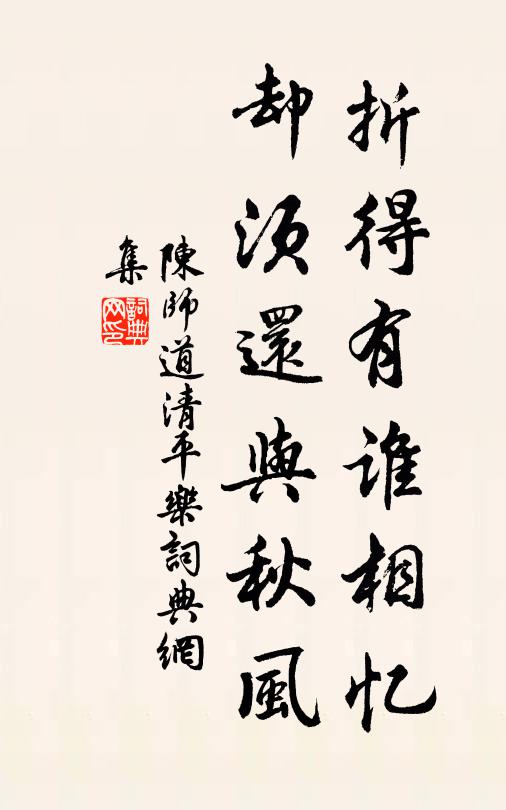 折得有谁相忆
却须還與秋風
陳師道清平樂詞典網
集
詞典网印